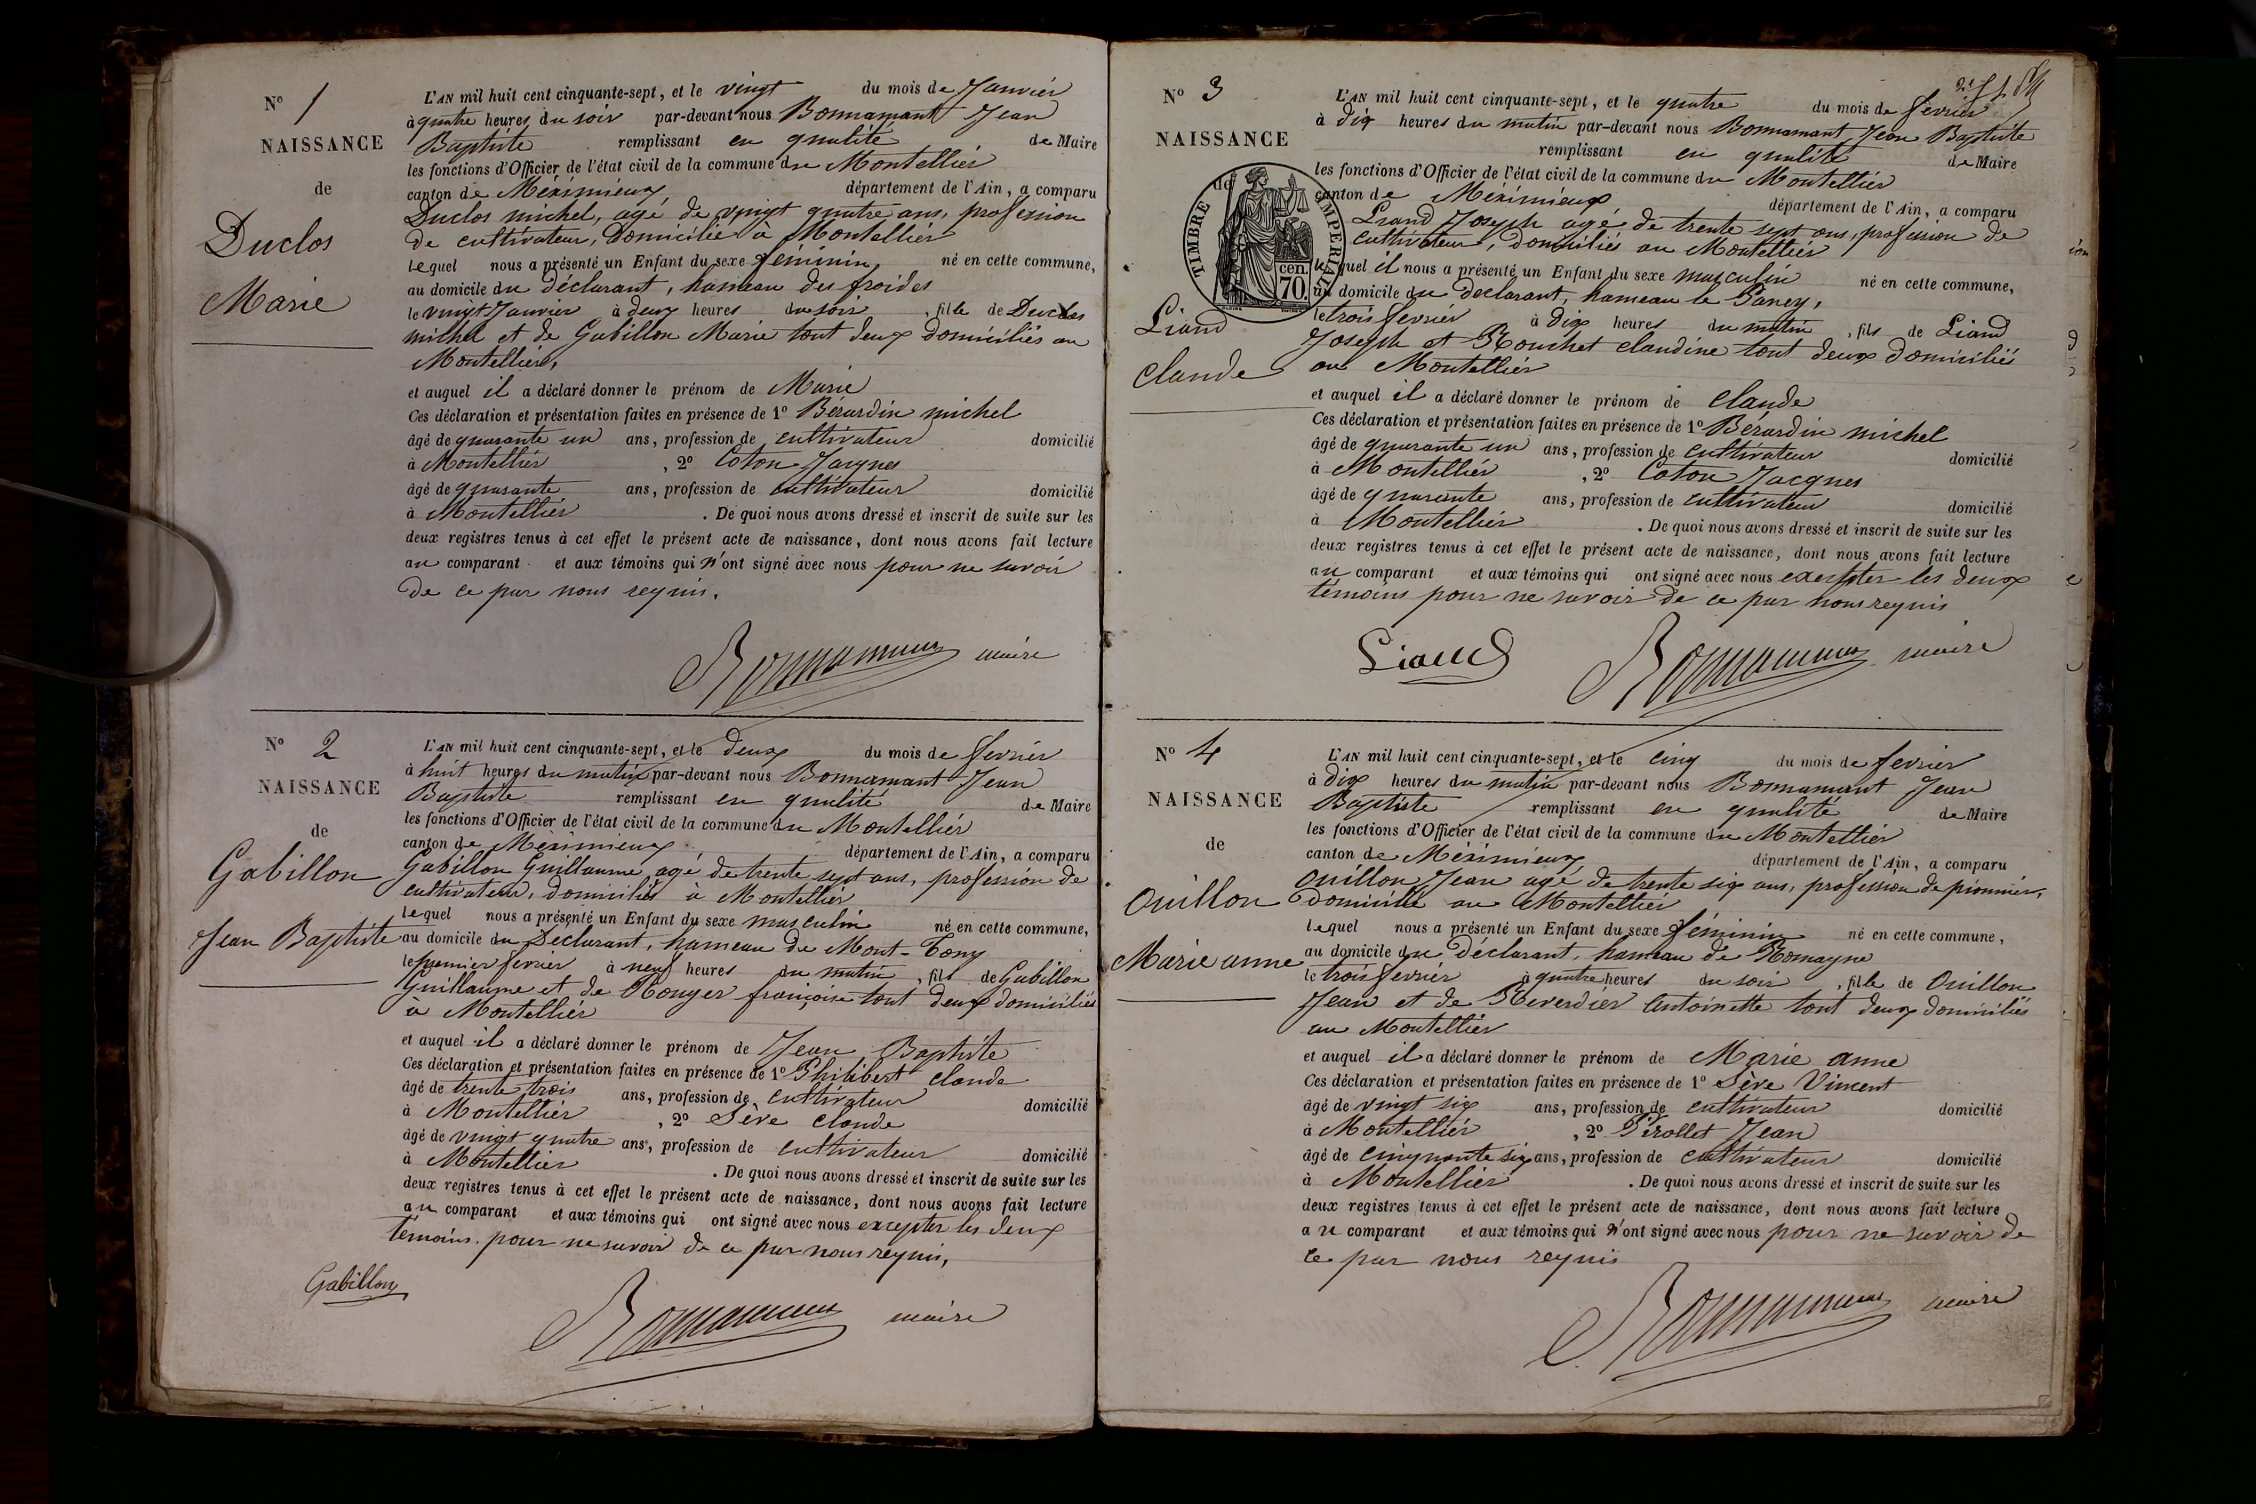 N° 1
NAISSANCE
de
Duclos
Marie
L'AN mil huit cent cinquante-sept, et le vingt du mois de Janvier
à quatre heures du soir par-devant nous Bonnamant Jean
Baptiste remplissant en qualité de Maire
les fonctions d'Officier de l'état civil de la commune du Montellier
canton de Méximieux département de l'Ain, a comparu
Duclos michel, agé de vingt quatre ans, profession
de cultivateur, domicilié à Montellier
lequel nous a présenté un Enfant du sexe féminin né en cette commune,
au domicile du déclarant, hameau des froides
le vingt Janvier à deux heures du soir, fille de Duclos
michel et de Gabillon Marie tout deux domiciliés au
Montellier,
et auquel il a déclaré donner le prénom de Marie
Ces déclaration et présentation faites en présence de 1° Bérardin michel
âgé de quarante un ans, profession de cultivateur domicilié
à Montellier, 2° Coton Jacques
âgé de quarante ans, profession de cultivateur domicilié
à Montellier. De quoi nous avons dressé et inscrit de suite sur les
deux registres tenus à cet effet le présent acte de naissance, dont nous avons fait lecture
au comparant et aux témoins qui n'ont signé avec nous pour ne savoir
de ce par nous requis.
Bonnamant maire
N° 2
NAISSANCE
de
Gabillon
Jean Baptiste
L'AN mil huit cent cinquante-sept, et le deux du mois de fevrier
à huit heures du matin par-devant nous Bonnamant Jean
Baptiste remplissant en qualité de Maire
les fonctions d'Officier de l'état civil de la commune du Montellier
canton de Méximieux département de l'Ain, a comparu
Gabillon Guillaume agé de trente sept ans, profession de
cultivateur, domicilié à Montellier
lequel nous a présenté un Enfant du sexe masculin né en cette commune,
au domicile du Déclarant, hameau de Mont-
le premier fevrier à neuf heures du matin, fils de Gabillon
Guillaume et de Rouyer françoise tout deux domiciliés
à Montellier
et auquel il a déclaré donner le prénom de Jean Baptiste
Ces déclaration et présentation faites en présence de 1° Philibert claude
âgé de trente trois ans, profession de cultivateur domicilié
à Montellier, 2° Sève claude
âgé de vingt quatre ans, profession de cultivateur domicilié
à Montellier. De quoi nous avons dressé et inscrit de suite sur les
deux registres tenus à cet effet le présent acte de naissance, dont nous avons fait lecture
au comparant et aux témoins qui ont signé avec nous excepter les deux
témoins pour ne savoir de ce par nous requis,
Gabillon
Bonnamant maire
N° 3
NAISSANCE
de
TIMBRE IMPERIAL
cen.
70.
Liand
claude
L'AN mil huit cent cinquante-sept, et le quatre du mois de fevrier
à dix heures du matin par-devant nous Bonnamant Jean Baptiste
remplissant en qualité de Maire
les fonctions d'Officier de l'état civil de la commune du Montellier
canton de Méximieux département de l'Ain, a comparu
Liand Joseph agé de trente sept ans, profession de
cultivateur, domiciliés au Montellier
lequel il nous a présenté un Enfant du sexe masculin né en cette commune,
au domicile du declarant, hameau le
le trois fevrier à dix heures du matin, fils de Liand
Joseph et Bouchet claudine tout deux domicilié
au Montellier
et auquel il a déclaré donner le prénom de claude
Ces déclaration et présentation faites en présence de 1° Bérardin michel
âgé de quarante un ans, profession de cultivateur domicilié
à Montellier, 2° Coton Jacques
âgé de quarante ans, profession de cultivateur domicilié
à Montellier. De quoi nous avons dressé et inscrit de suite sur les
deux registres tenus à cet effet le présent acte de naissance, dont nous avons fait lecture
au comparant et aux témoins qui ont signé avec nous excepter les deux
témoins pour ne savoir de ce par nous requis
Liand
Bonnamant maire
N° 4
NAISSANCE
de
Ouillon
Marie anne
L'AN mil huit cent cinquante-sept, et le cinq du mois de fevrier
à dix heures du matin par-devant nous Bonnamant Jean
Baptiste remplissant en qualité de Maire
les fonctions d'Officier de l'état civil de la commune du Montellier
canton de Méximieux département de l'Ain, a comparu
Ouillon Jean agé de trente six ans, profession de pionnier,
domicilié au Montellier
lequel nous a présenté un Enfant du sexe féminin né en cette commune,
au domicile du déclarant, hameau de Romagne
le trois fevrier à quatre heures du soir, fille de Ouillon
Jean et de Reverdier Antoinette tout deux domiciliés
au Montellier
et auquel il a déclaré donner le prénom de Marie anne
Ces déclaration et présentation faites en présence de 1° Sève Vincent
âgé de vingt six ans, profession de cultivateur domicilié
à Montellier, 2° Pirollet Jean
âgé de cinquante six ans, profession de cultivateur domicilié
à Montellier. De quoi nous avons dressé et inscrit de suite sur les
deux registres tenus à cet effet le présent acte de naissance, dont nous avons fait lecture
au comparant et aux témoins qui n'ont signé avec nous pour ne savoir de
ce par nous requis
Bonnamant maire